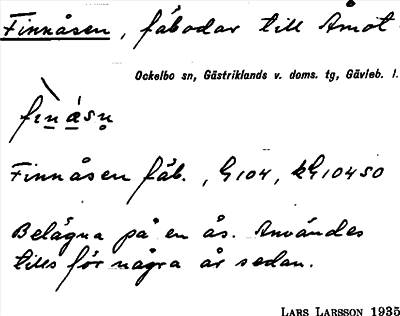 Finnåsen, fäbodar till Åmot
Ockelbo sn, Gästriklands v. doms. tg, Gävleb. l.
Finnåsen fäb., G104, kG104SO
Belägna på en ås. Användes
tills för några år sedan.
LARS LARSSON 1935